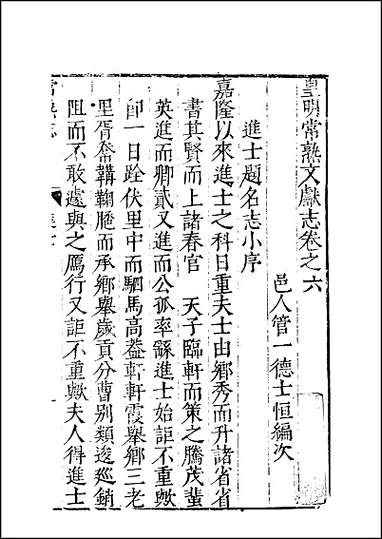 皇明常熟文獻志卷之六
邑人管一德士恒編次
進士題名志小序
嘉隆以來進士之科日重夫士由鄉秀而升諸省省
書其賢而上諸春官 天子臨軒而策之騰茂蜚
英進而卿貳又進而公孤率繇進士始詎不重歟
卽一日跧伏里中而駟馬高葢軒軒霞舉鄉三老
里胥奮韝鞠𦜕而承鄉舉歲貢分曹別類逡廵銷
阻而不敢遽與之鴈行又詎不重歟夫人得進士